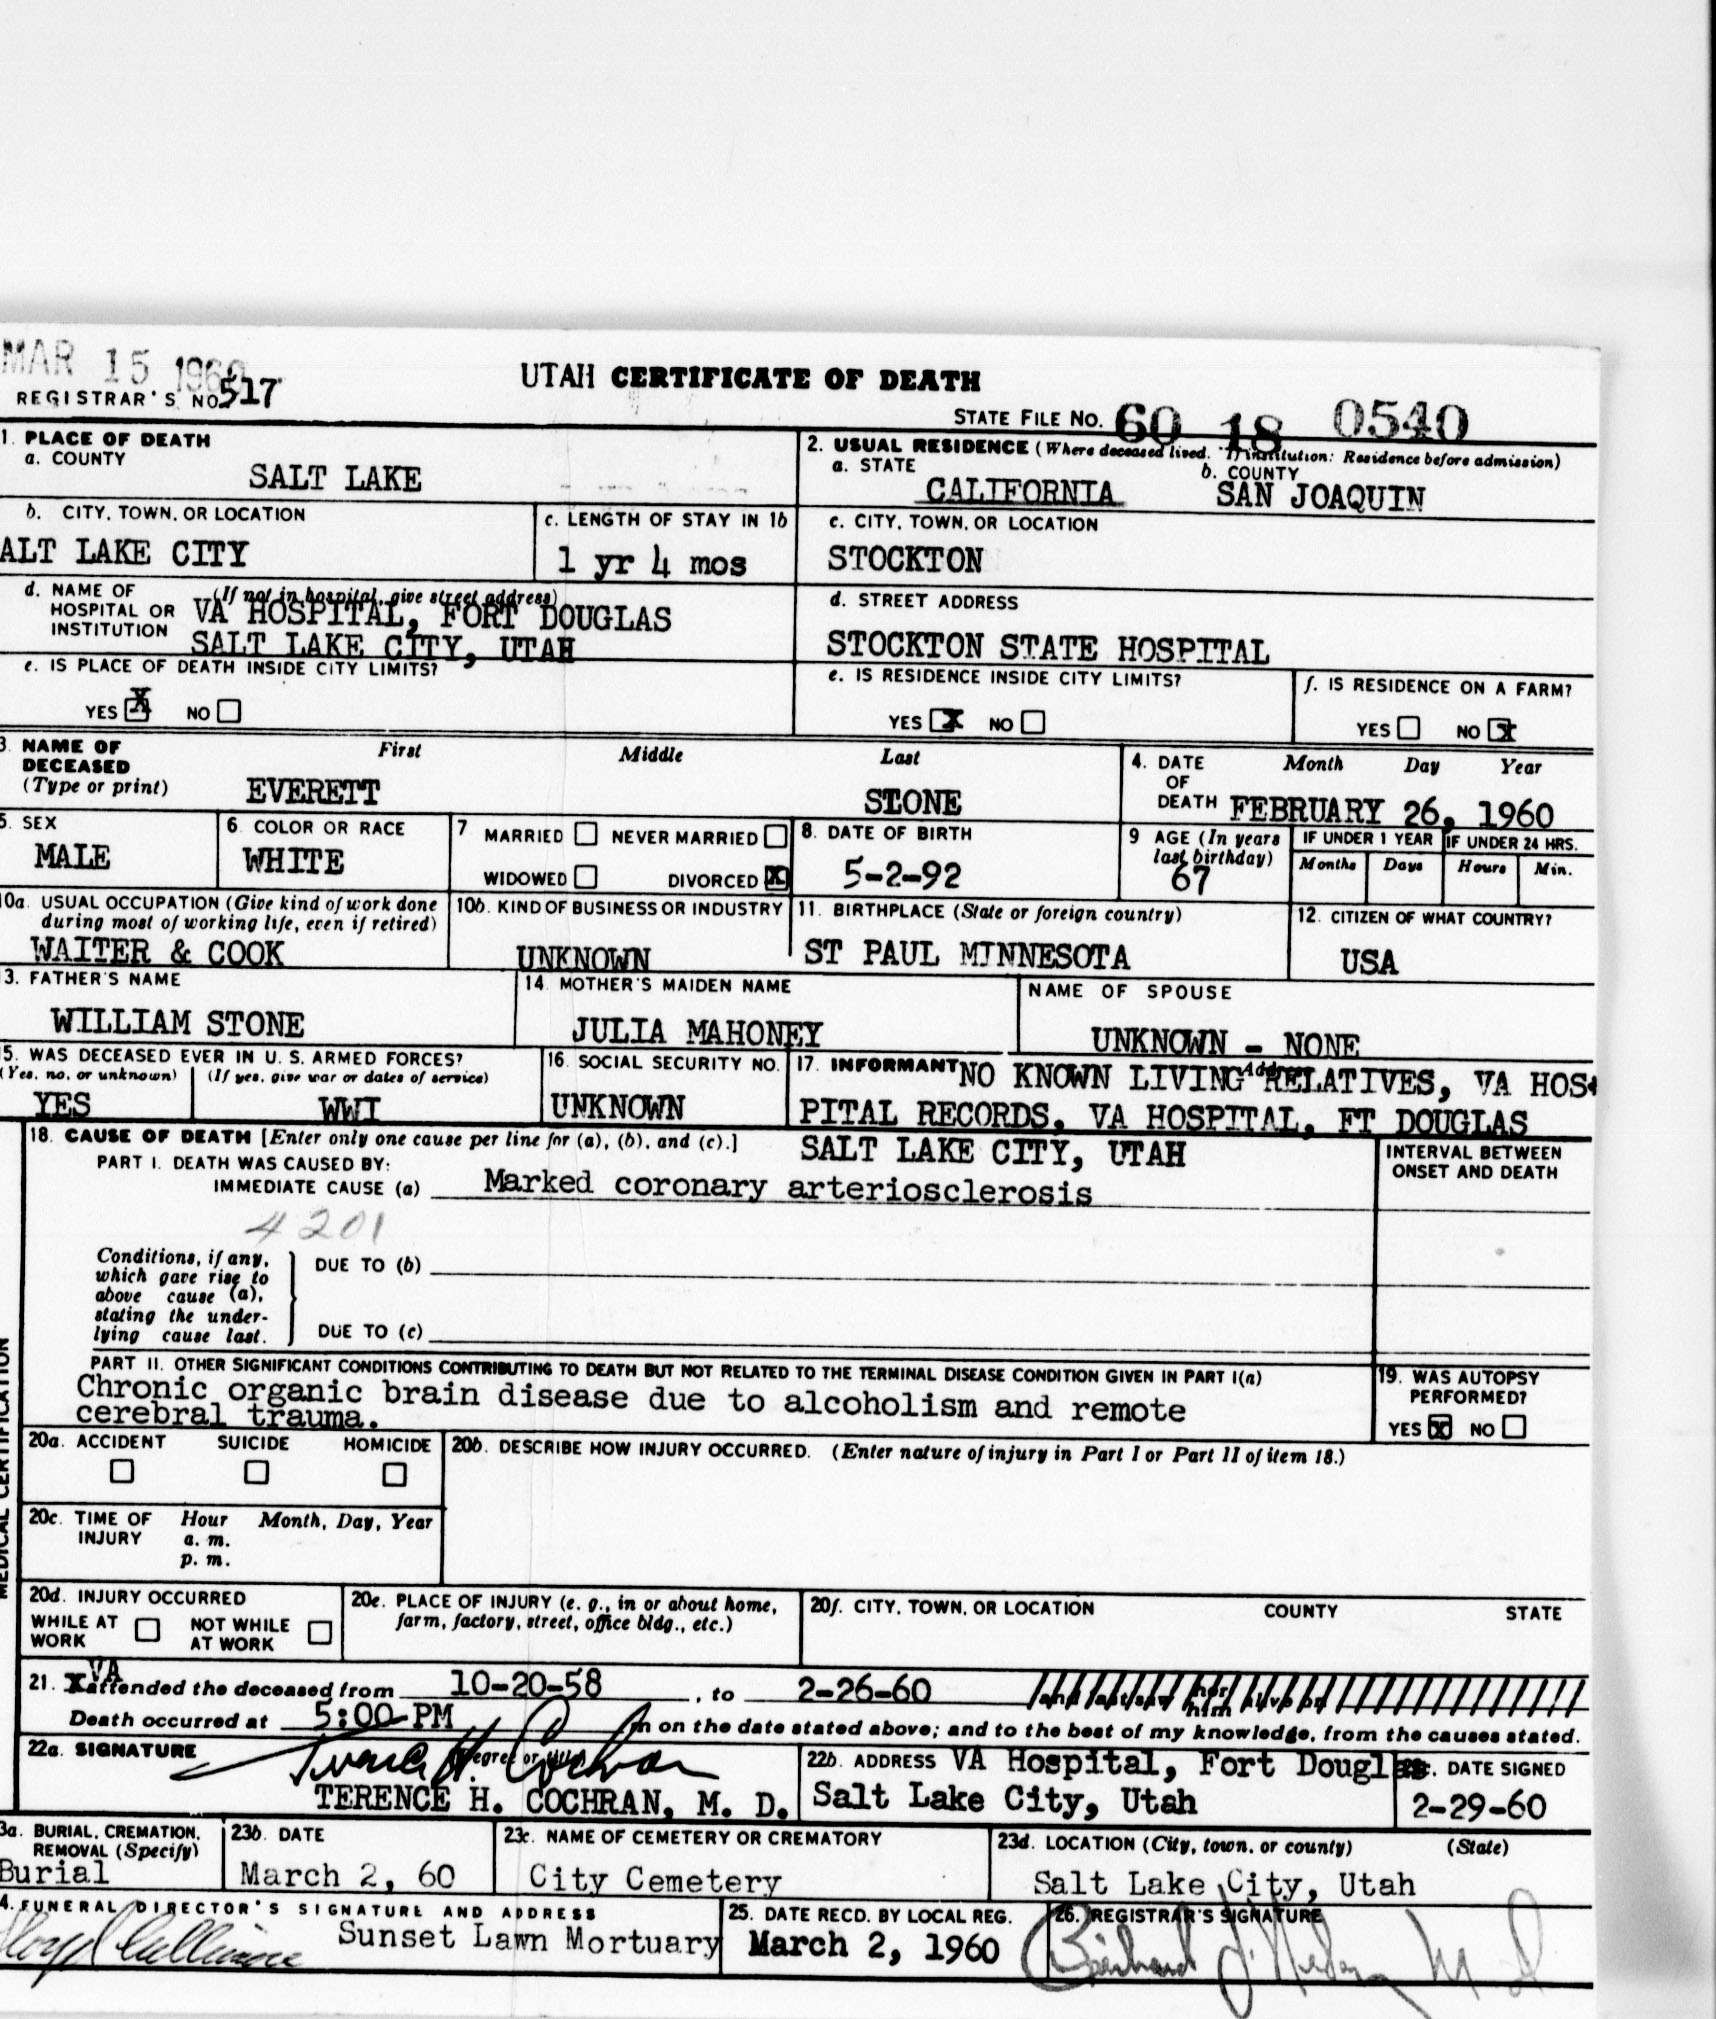 MAR 15 1960
REGISTRAR'S NO. 517
UTAH CERTIFICATE OF DEATH
STATE FILE NO. 60 18 0540
1. PLACE OF DEATH
a. COUNTY
SALT LAKE
2. USUAL RESIDENCE (Where deceased lived. If institution: Residence before admission)
a. STATE b. COUNTY
CALIFORNIA SAN JOAQUIN
b. CITY, TOWN, OR LOCATION
ALT LAKE CITY
c. LENGTH OF STAY IN 1b
1 yr 4 mos
c. CITY, TOWN, OR LOCATION
STOCKTON
d. NAME OF (If not in hospital, give street address)
HOSPITAL OR VA HOSPITAL, FORT DOUGLAS
INSTITUTION SALT LAKE CITY, UTAH
d. STREET ADDRESS
STOCKTON STATE HOSPITAL
e. IS PLACE OF DEATH INSIDE CITY LIMITS?
YES X NO
e. IS RESIDENCE INSIDE CITY LIMITS?
YES X NO
f. IS RESIDENCE ON A FARM?
YES NO X
3. NAME OF DECEASED (Type or print)
First Middle Last
EVERETT STONE
4. DATE OF DEATH Month Day Year
FEBRUARY 26, 1960
5. SEX
MALE
6. COLOR OR RACE
WHITE
7 MARRIED NEVER MARRIED
WIDOWED DIVORCED X
8. DATE OF BIRTH
5-2-92
9 AGE (In years last birthday)
67
IF UNDER 1 YEAR IF UNDER 24 HRS.
Months Days Hours Min.
10a. USUAL OCCUPATION (Give kind of work done
during most of working life, even if retired)
WAITER & COOK
10b. KIND OF BUSINESS OR INDUSTRY
UNKNOWN
11. BIRTHPLACE (State or foreign country)
ST PAUL MINNESOTA
12. CITIZEN OF WHAT COUNTRY?
USA
3. FATHER'S NAME
WILLIAM STONE
14. MOTHER'S MAIDEN NAME
JULIA MAHONEY
NAME OF SPOUSE
UNKNOWN - NONE
5. WAS DECEASED EVER IN U. S. ARMED FORCES?
(Yes, no, or unknown) (If yes, give war or dates of service)
YES WWI
16. SOCIAL SECURITY NO.
UNKNOWN
17. INFORMANT Address
NO KNOWN LIVING RELATIVES, VA HOS-
PITAL RECORDS, VA HOSPITAL, FT DOUGLAS
SALT LAKE CITY, UTAH
MEDICAL CERTIFICATION
18. CAUSE OF DEATH [Enter only one cause per line for (a), (b), and (c).]
PART I. DEATH WAS CAUSED BY:
IMMEDIATE CAUSE (a) Marked coronary arteriosclerosis
INTERVAL BETWEEN
ONSET AND DEATH
4201
Conditions, if any,
which gave rise to
above cause (a),
stating the under-
lying cause last.
DUE TO (b)
DUE TO (c)
PART II. OTHER SIGNIFICANT CONDITIONS CONTRIBUTING TO DEATH BUT NOT RELATED TO THE TERMINAL DISEASE CONDITION GIVEN IN PART I(a)
Chronic organic brain disease due to alcoholism and remote
cerebral trauma.
19. WAS AUTOPSY
PERFORMED?
YES X NO
20a. ACCIDENT SUICIDE HOMICIDE
20b. DESCRIBE HOW INJURY OCCURRED. (Enter nature of injury in Part I or Part II of item 18.)
20c. TIME OF INJURY Hour Month, Day, Year
a. m.
p. m.
20d. INJURY OCCURRED
WHILE AT WORK NOT WHILE AT WORK
20e. PLACE OF INJURY (e. g., in or about home,
farm, factory, street, office bldg., etc.)
20f. CITY, TOWN, OR LOCATION COUNTY STATE
VA
21. attended the deceased from 10-20-58, to 2-26-60 and last saw her him alive on
Death occurred at 5:00 PM m on the date stated above; and to the best of my knowledge, from the causes stated.
22a. SIGNATURE (Degree or title)
Terence H. Cochran
TERENCE H. COCHRAN, M. D.
22b. ADDRESS VA Hospital, Fort Douglas
Salt Lake City, Utah
22c. DATE SIGNED
2-29-60
3a. BURIAL, CREMATION,
REMOVAL (Specify)
Burial
23b. DATE
March 2, 60
23c. NAME OF CEMETERY OR CREMATORY
City Cemetery
23d. LOCATION (City, town, or county) (State)
Salt Lake City, Utah
4. FUNERAL DIRECTOR'S SIGNATURE AND ADDRESS
Sunset Lawn Mortuary
25. DATE RECD. BY LOCAL REG.
March 2, 1960
26. REGISTRAR'S SIGNATURE